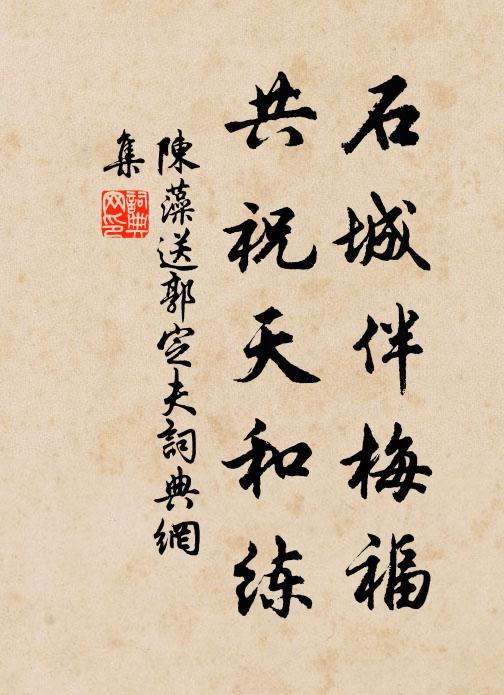 石城伴梅福
共祝天和练
陳藻送郭定夫詞典網
集
詞典网印